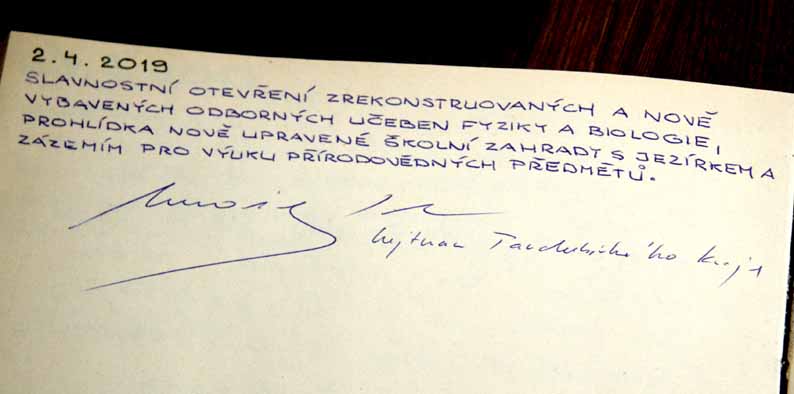 2.4.2019
SLAVNOSTNÍ OTEVŘENÍ ZREKONSTRUOVANÝCH A NOVĚ
VYBAVENÝCH ODBORNÝCH UČEBEN FYZIKY A BIOLOGIE,
PROHLÍDKA NOVĚ UPRAVENÉ ŠKOLNÍ ZAHRADY S JEZÍRKEM A
ZÁZEMÍM PRO VÝUKU PŘÍRODOVĚDNÝCH PŘEDMĚTŮ.
hejtman Pardubického kraje